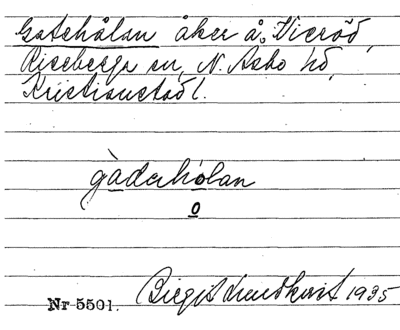 Gatehålan åker å Vieröd,
Riseberga sn, N. Åsbo hd,
Kristianstad l.
gàdahólan
o
Nr 5501. Birgit Lundkvist 1935